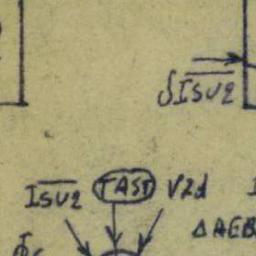 δISV2
ISV2 TAST V2d
ΔAEB